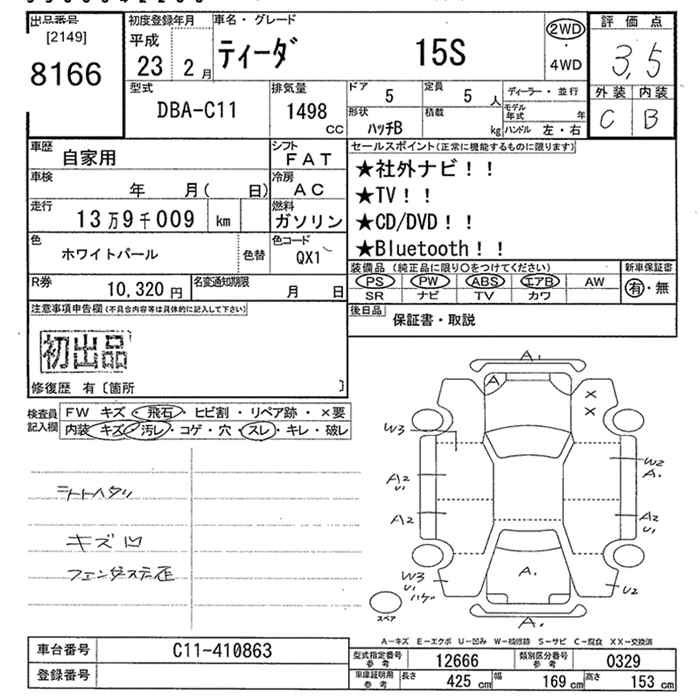 出品番号
[2149]
8166
初度登録年月
平成
23 2月
車名・グレード
ティーダ 15S
2WD
・
4WD
評価点
3,5
外装 内装
C B
型式
DBA-C11
排気量
1498
CC
ドア
5
定員
5 人
ディーラー・並行
形状
ハッチB
積載
kg
モデル年式 年
ハンドル 左・右
車歴
自家用
シフト
FAT
車検
年 月( 日)
冷房
AC
走行
13万9千009 km
燃料
ガソリン
色
ホワイトパール
色替
色コード
QX1
R券
10,320 円
名変通知期限
月 日
セールスポイント(正常に機能するものに限ります)
★社外ナビ!!
★TV!!
★CD/DVD!!
★Bluetooth!!
装備品 (純正品に限り○をつけてください)
PS PW ABS エアB AW
SR ナビ TV カワ
新車保証書
有・無
後日品
保証書・取説
注意事項申告欄(不具合内容等は具体的に記入して下さい)
初出品
修復歴 有〔箇所 〕
検査員
記入欄
FW キズ・飛石・ヒビ割・リペア跡・×要
内装 キズ・汚レ・コゲ・穴・スレ・キレ・破レ
シートヘタリ
キズ凹
A1
A
×
×
W3
W2
A1
A2
U1
A2
U1
A2
W3
U1
ハゲ
A1
U2
A1
スペア
A-キズ E-エクボ U-凹み W-補修跡 S-サビ C-腐食 XX-交換済
車台番号
C11-410863
登録番号
型式指定番号
参考
12666
類別区分番号
参考
0329
車庫証明用
参考
長さ
425 cm
幅
169 cm
高さ
153 cm